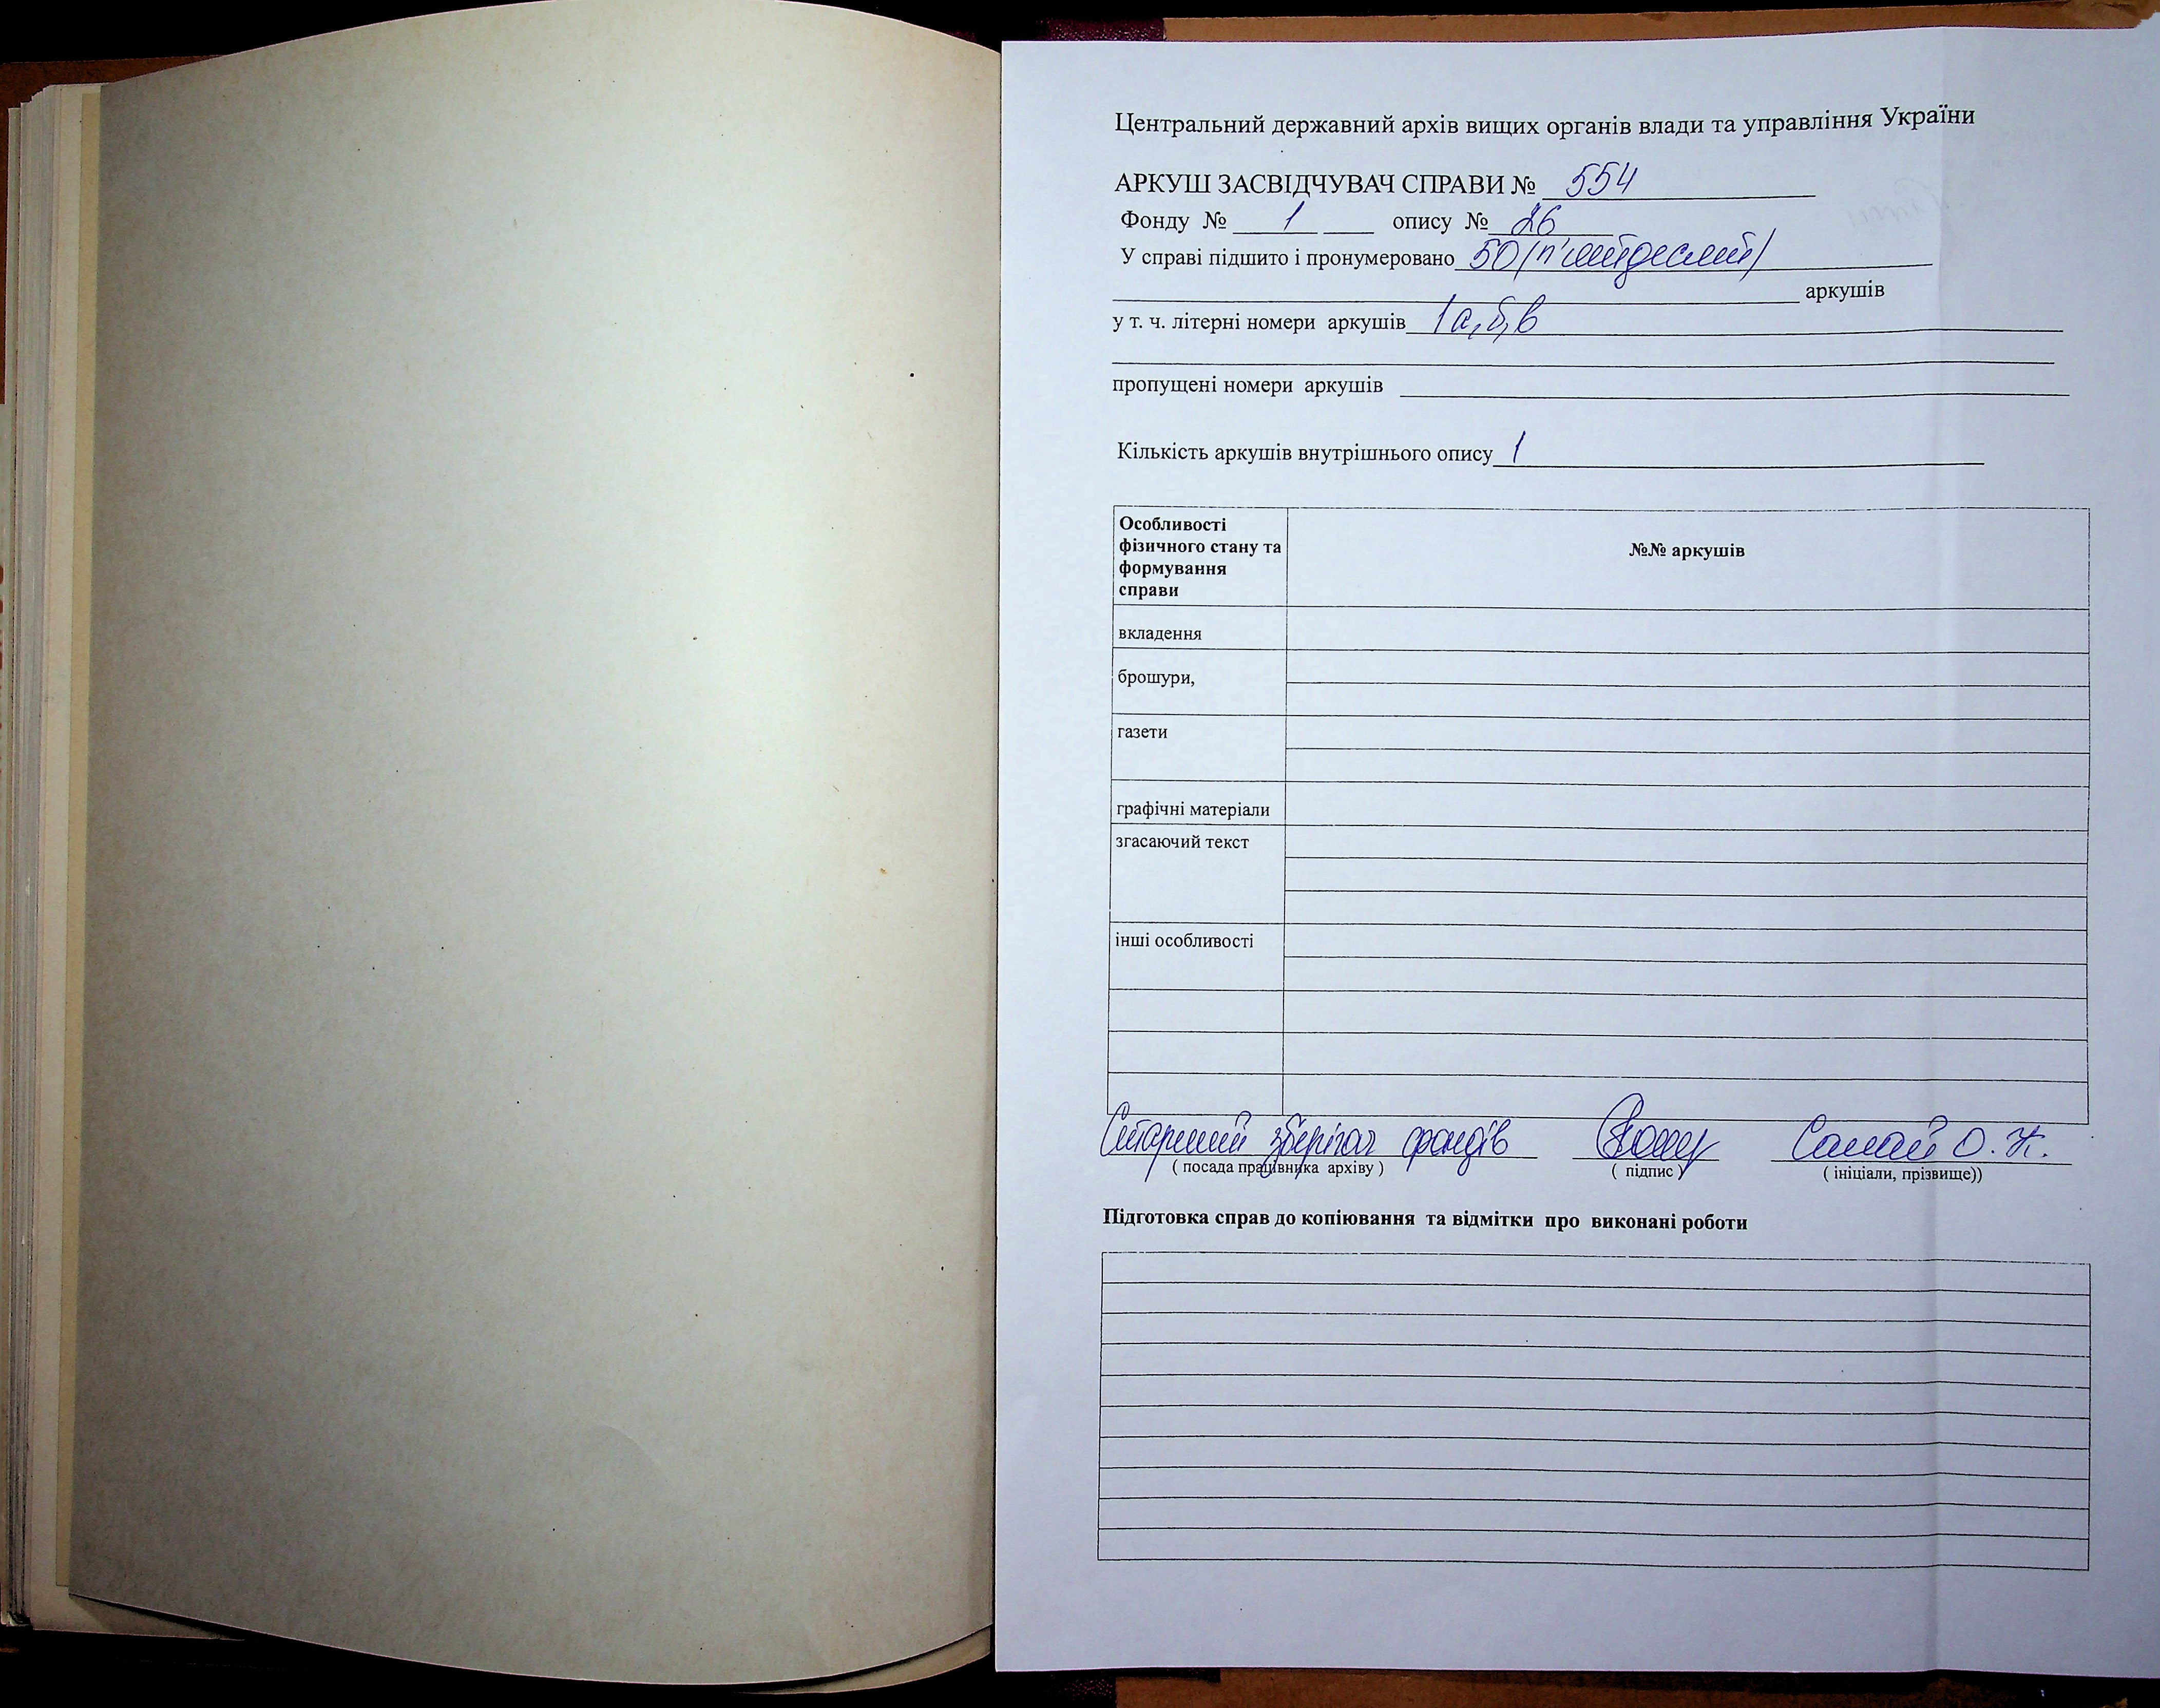 Центральний державний архів вищих органів влади та управління України
АРКУШ ЗАСВІДЧУВАЧ СПРАВИ № 554
Фонду № 1 опису № 26
У справі підшито і пронумеровано 50 (п'ятдесят)
аркушів
у т. ч. літерні номери аркушів 1а,б,в
пропущені номери аркушів
Кількість аркушів внутрішнього опису 1
Особливості
фізичного стану та
формування
справи
№№ аркушів
вкладення
брошури,
газети
графічні матеріали
згасаючий текст
інші особливості
Старший зберігач фондів О. Н.
( посада працівника архіву ) ( підпис ) ( ініціали, прізвище))
Підготовка справ до копіювання та відмітки про виконані роботи